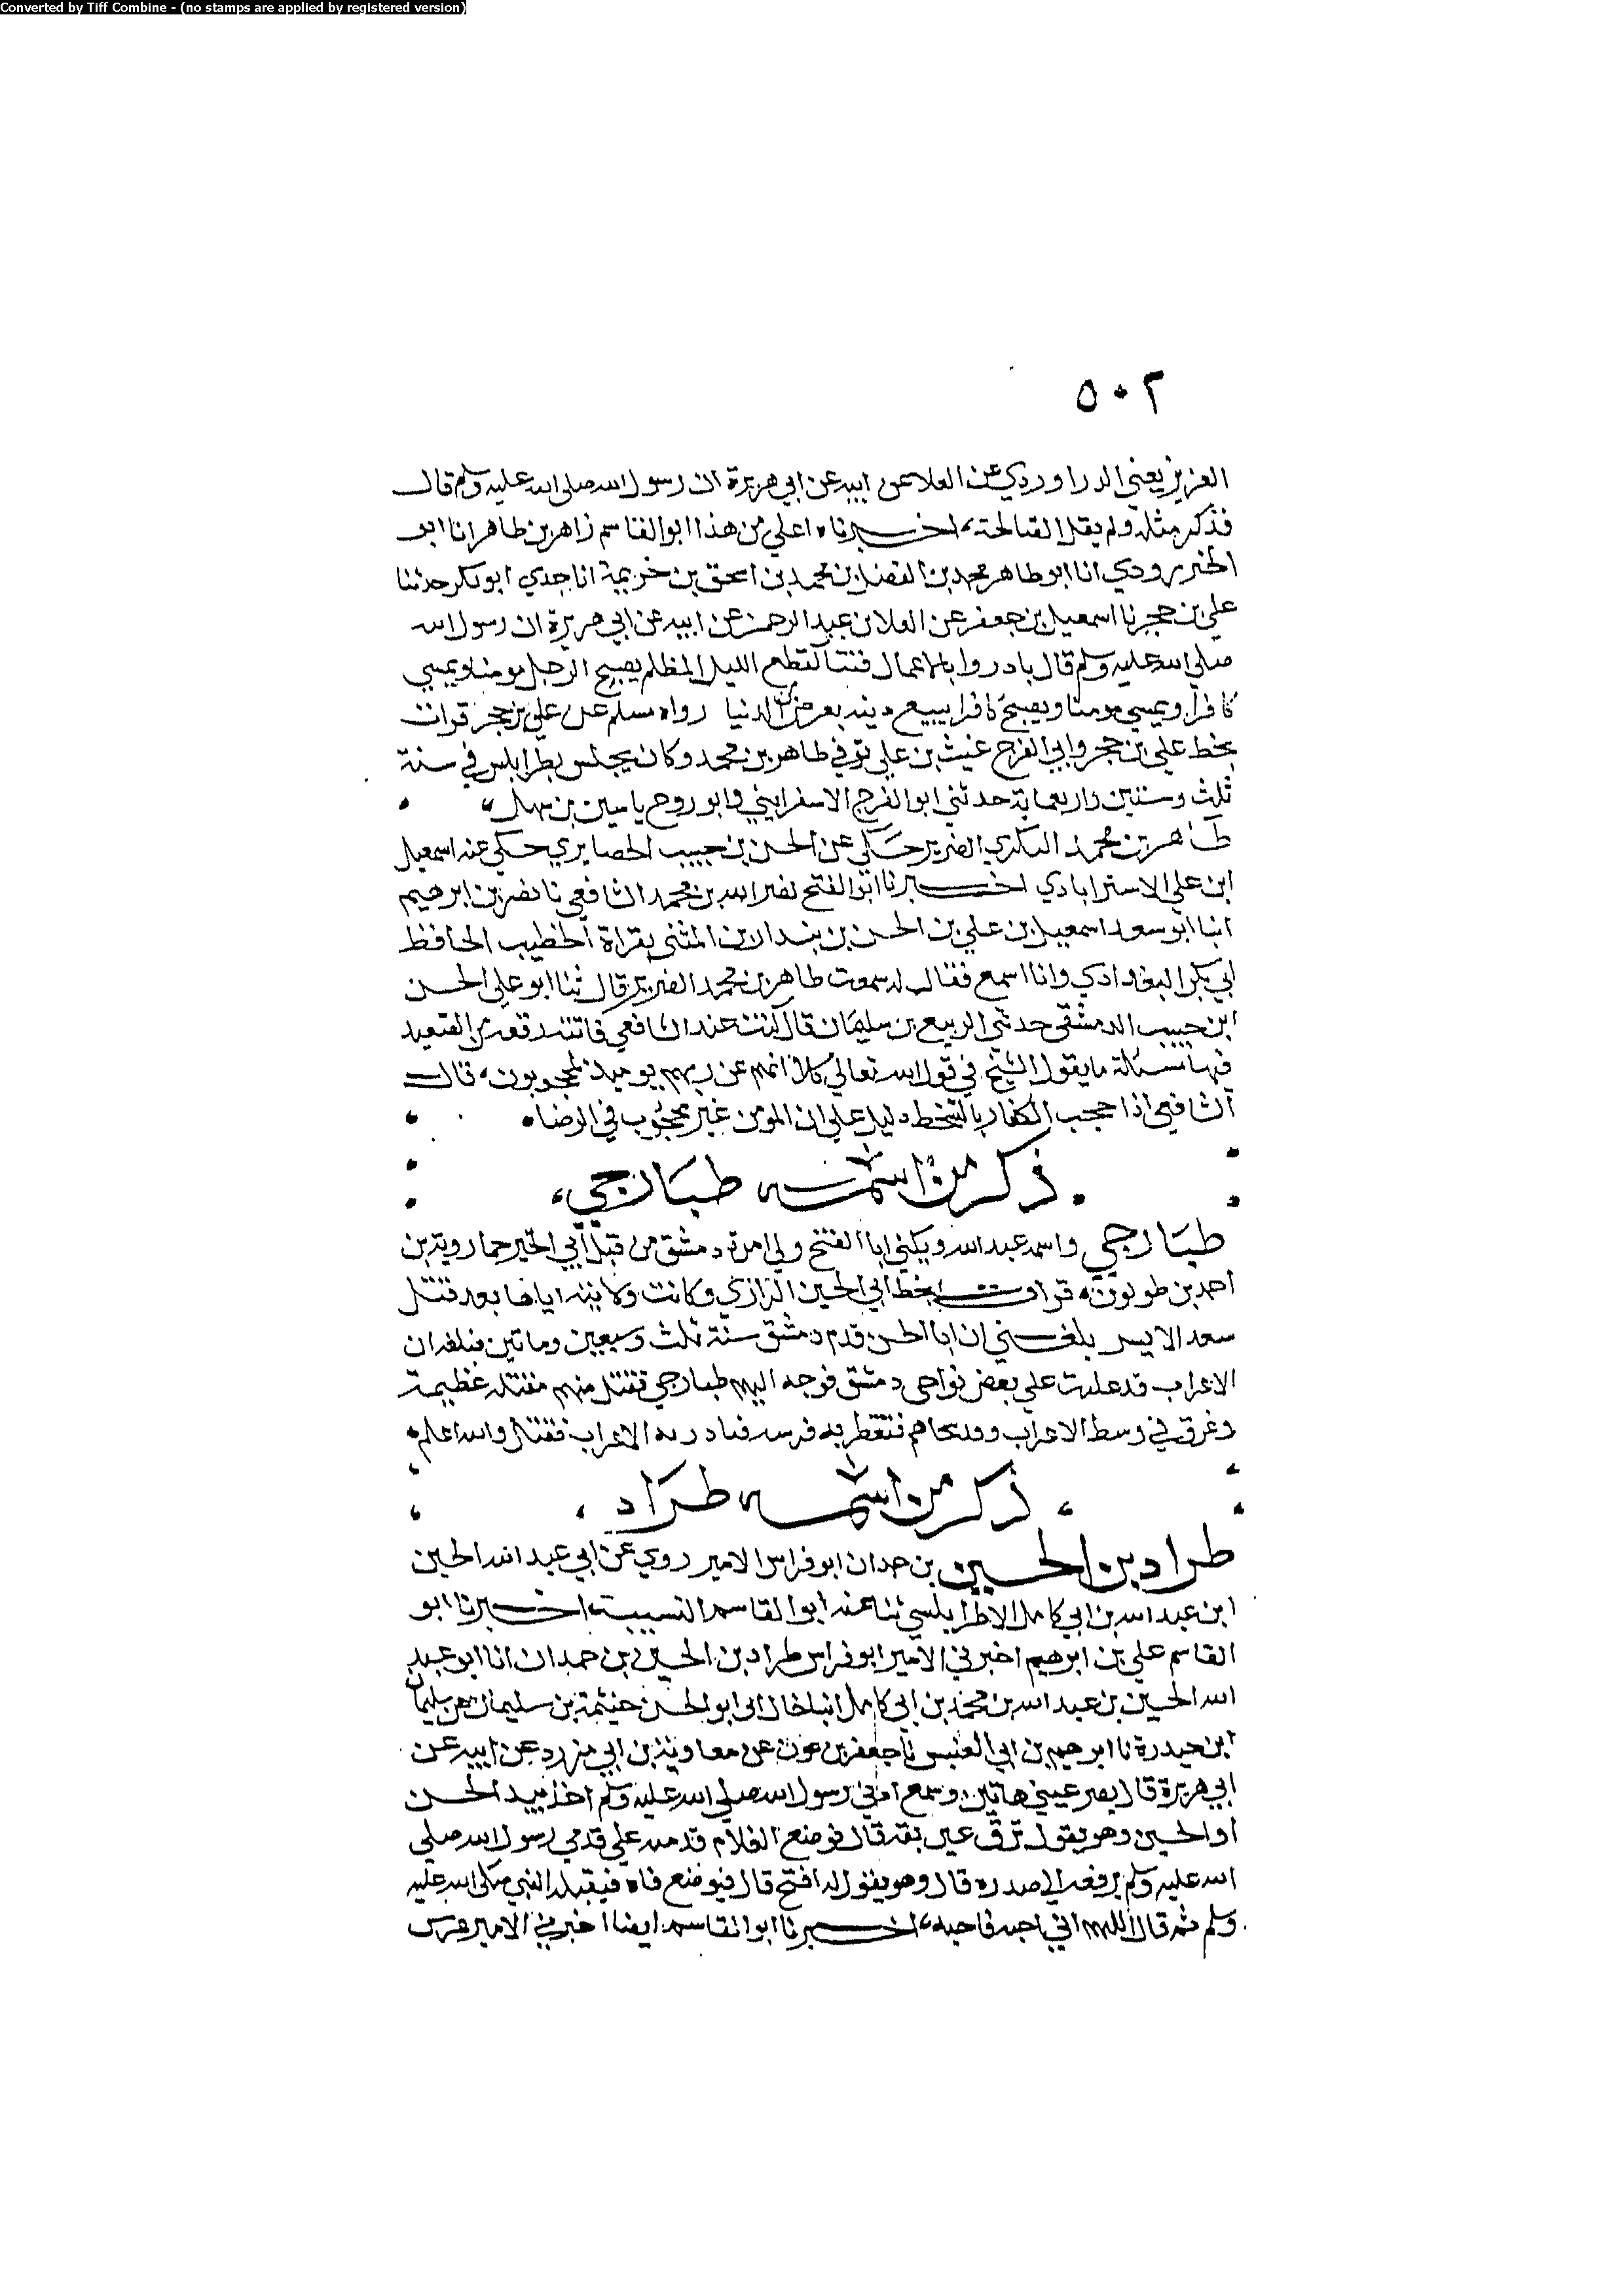 Converted by Tiff Combine - (no stamps are applied by registered version)
٥٠٢
العزيز يعني الدراوردي عن العلا عن ابيه عن ابي هريرة ان رسول الله صلى الله عليه وسلم قال
فذكر مثله ولم يقل الصالحة، اخبرناه اعلي من هذا ابو القاسم زاهر بن طاهر انا ابو
الخنزرودي انا ابو طاهر محمد بن الفضل بن محمد بن اسحق بن خزيمة انا جدي ابو بكر حدثنا
علي بن حجر نا اسمعيل بن جعفر عن العلا بن عبد الرحمن عن ابيه عن ابي هريرة ان رسول الله
صلى الله عليه وسلم قال بادروا بالاعمال فتنا كقطع الليل المظلم يصبح الرجل مومنا ويمسي
كافرا ويمسي مومنا ويصبح كافرا يبيع دينه بعرض من الدنيا رواه مسلم عن علي بن حجر قرات
بخط علي بن حجر وابي الفرج غيث بن علي توفي طاهر بن محمد وكان يجلس بطرابلس في سنة
ثلث وستين واربعماية حدثني ابو الفرج الاسفرايني وابو روح ياسين بن سهل،
طاهر بن محمد البكري الضرير حكي عن الحسن بن حبيب الحصايري حكي عنه اسمعيل
ابن علي الاسترابادي اخبرنا ابو الفتح نصر الله بن محمد الشافعي نا نصر بن ابرهيم
انبا ابو سعد اسمعيل بن علي بن الحسن بن بندار بن المثنى بقراة الخطيب الحافظ
ابي بكر البغدادي وانا اسمع فقال له سمعت طاهر بن محمد الضرير قال ثنا ابو علي الحسن
ابن حبيب الدمشقي حدثني الربيع بن سليمان قال كنت عند الشافعي فاتته رقعة من الصعيد
فيها مسئلة ما يقول الشيخ في قول الله تعالي كلا انهم عن ربهم يوميذ لمحجوبون، قال
الشافعي اذا حجب الكفار بالسخط دليل علي ان المومن غير محجوب في الرضا
ذكر من اسمه طبارجي،
طبارجي واسمه عبد الله ويكني ابا الفتح ولي امرة دمشق من قبل ابي الجيش خمارويه بن
احمد بن طولون، قرات بخط ابي الحسين الرازي وكانت ولايته اياها بعد قتل
سعد الايسر بلغني ان ابا الحسن قدم دمشق سنة ثلث وسبعين وماتين فبلغه ان
الاعراب قد غلبت علي بعض نواحي دمشق فوجه اليهم طبارجي فقتل منهم مقتله عظيمة
وغرق في وسط الاعراب فتقطر به فرسه فبادر به الاعراب فقتل والله اعلم
ذكر من اسمه طراد،
طراد بن الحسين بن حمدان ابو فراس الامير روي عن ابي عبد الله الحسين
ابن عبد الله بن ابي كامل الاطرابلسي ثنا عنه ابو القاسم النسيب، اخبرنا ابو
القاسم علي بن ابرهيم اخبرني الامير ابو فراس طراد بن الحسين بن حمدان انا ابو عبد
الله الحسين بن عبد الله بن محمد بن ابي كامل انبا خال ابي ابو الحسن خيثمة بن سليمان بن سليمان
ابن حيدرة نا ابرهيم بن ابي العنبس نا جعفر بن عون عن معاوية بن ابي مزرد عن ابيه عن
ابي هريرة قال بصر عيني هاتين وسمع اذني رسول الله صلي الله عليه وسلم اخذ بيد الحسن
او الحسين وهو يقول ترق عين بقه قال فوضع الغلام قدمه علي قدمي رسول الله صلي
الله عليه وسلم يرفعه الي صدره قال وهو يقول له افتح قال فيوضع فاه فيقبله النبي صلى الله عليه
وسلم ثم قال اللهم اني احبه فاحبه، اخبرنا ابو القاسم ايضا اخبرني الامير